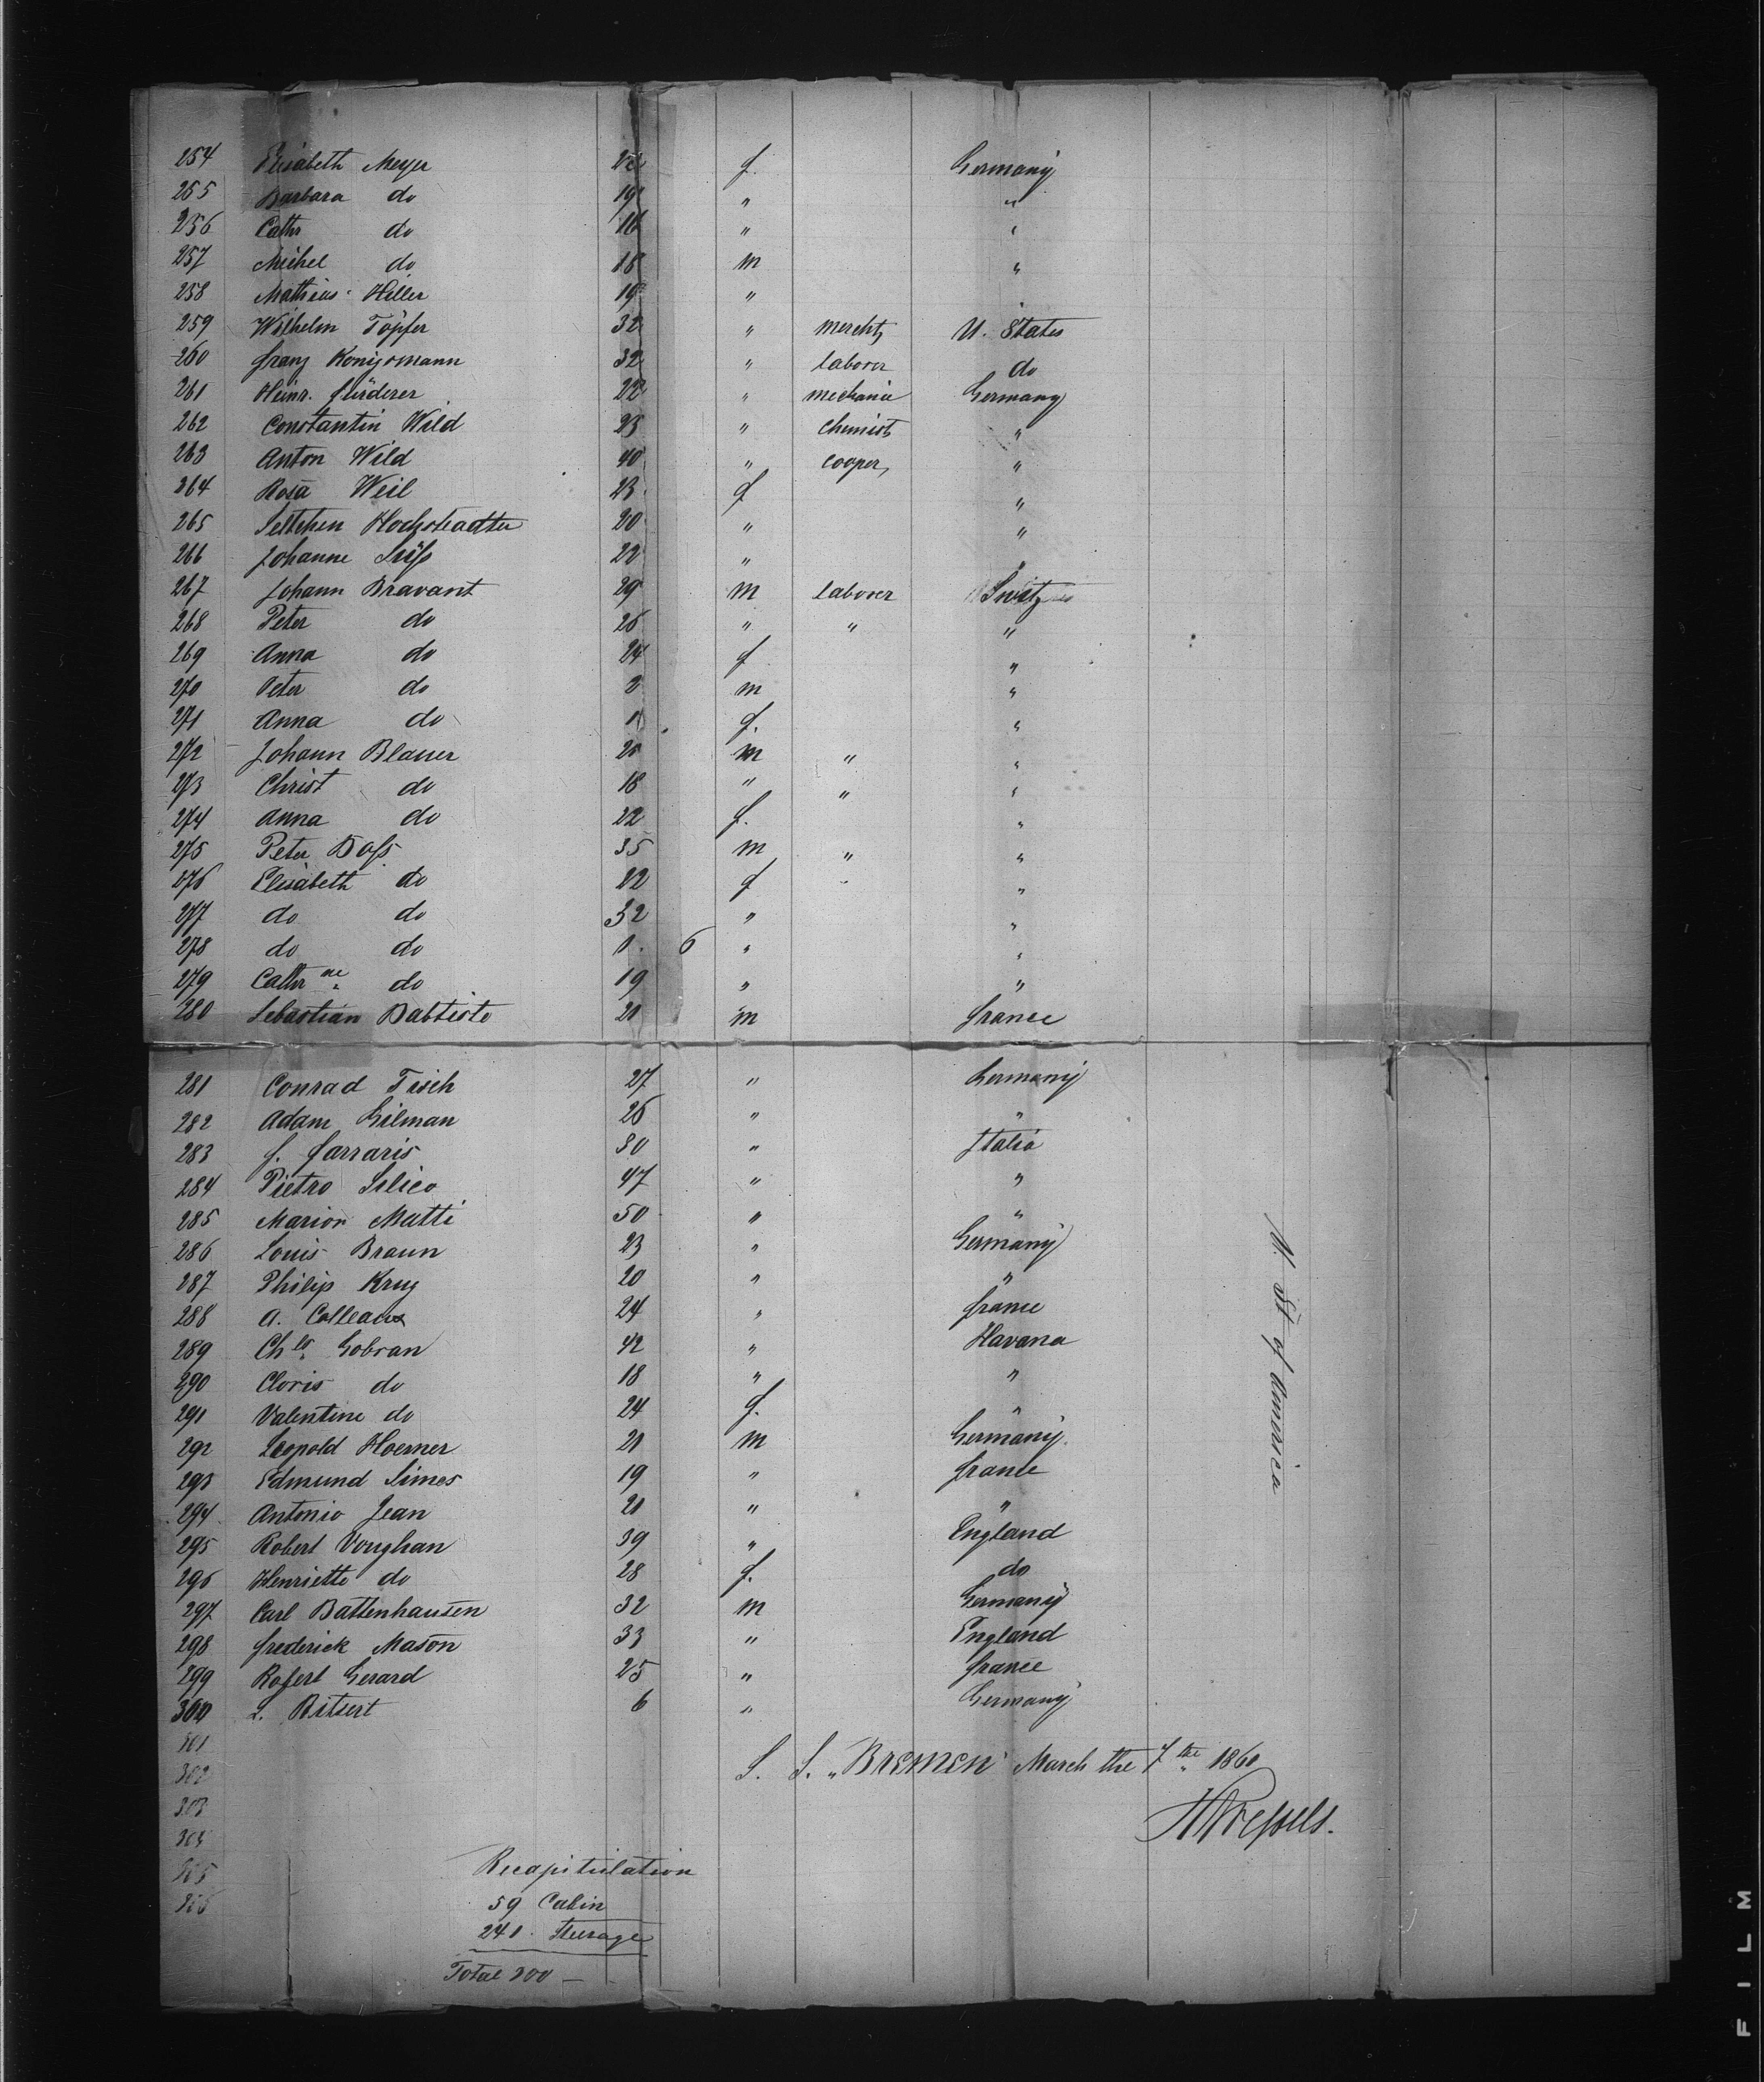 254 Elisabeth Meyer f. Germany
255 Barbara do 19 " "
256 Cathr do 16 " "
257 Michel do 18 m "
258 Mathias Hiller 19 " "
259 Wilhelm Töpfer 32 " mercht U. States
260 Franz Konigsmann 32 " laborer do
261 Heinr. Fürderer 22 " mechanic Germany
262 Constantin Wild 23 " chemist "
263 Anton Wild 40 " cooper "
264 Rosa Weil 23 f "
265 Hochstadter 20 " "
266 Johanne Süß 22 " "
267 Johann Bravant 29 m laborer Switz
268 Peter do 26 " " "
269 Anna do 24 f "
270 Peter do 2 m "
271 Anna do 1 f. "
272 Johann Blauer m " "
273 Christ do 18 " " "
274 Anna do 22 f. "
275 Peter Boß 35 m " "
276 Elisabeth do 22 f "
277 do do 32 " "
278 do do 1. 6 " "
279 Cathrne do 19 " "
280 Sebastian Babtiste 21 m France
281 Conrad Tisch 27 " Germany
282 Adam Gilman 26 " "
283 F. Farraris 30 " Italia
284 Pietro Silico 47 " "
285 Marion Matti 50 " "
286 Louis Braun 23 " Germany
287 Philip Krug 20 " "
288 A. Colleaux 24 " France
289 Chls Gobran 42 " Havana
290 Cloris do 18 " "
291 Valentine do 24 f. "
292 Leopold Hoerner 21 m Germany
293 Edmund Simes 19 " France
294 Antonio Jean 21 " "
295 Robert Voughan 39 " England
296 Henriette do 28 f. do
297 Carl Battenhausen 32 m Germany
298 Frederick Mason 33 " England
299 Robert Gerard 25 " France
300 L. Bitsert 6 " Germany
U. St of America
301
302 S. S. "Bremen" March the 7the 1860
303
304
305 Recapitulation
306 59 Cabin
241 Steerage
Total 300 —
FILM